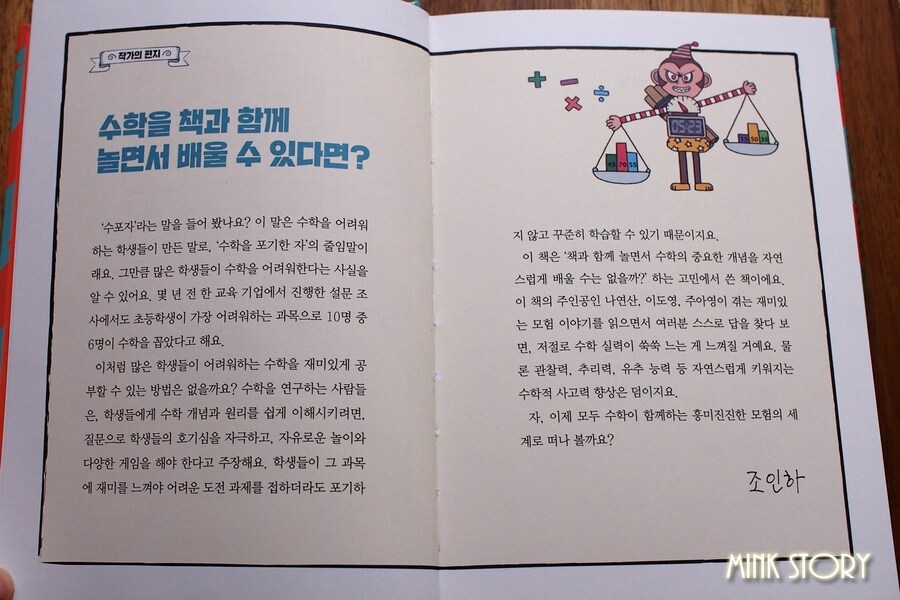 작가의 편지
수학을 책과 함께
놀면서 배울 수 있다면?
‘수포자’라는 말을 들어 봤나요? 이 말은 수학을 어려워
하는 학생들이 만든 말로, ‘수학을 포기한 자’의 줄임말이
래요. 그만큼 많은 학생들이 수학을 어려워한다는 사실을
알 수 있어요. 몇 년 전 한 교육 기업에서 진행한 설문 조
사에서도 초등학생이 가장 어려워하는 과목으로 10명 중
6명이 수학을 꼽았다고 해요.
이처럼 많은 학생들이 어려워하는 수학을 재미있게 공
부할 수 있는 방법은 없을까요? 수학을 연구하는 사람들
은, 학생들에게 수학 개념과 원리를 쉽게 이해시키려면,
질문으로 학생들의 호기심을 자극하고, 자유로운 놀이와
다양한 게임을 해야 한다고 주장해요. 학생들이 그 과목
에 재미를 느껴야 어려운 도전 과제를 접하더라도 포기하
+ − × ÷
05:23
45 70 55
35 50 35
지 않고 꾸준히 학습할 수 있기 때문이지요.
이 책은 ‘책과 함께 놀면서 수학의 중요한 개념을 자연
스럽게 배울 수는 없을까?’ 하는 고민에서 쓴 책이에요.
이 책의 주인공인 나연산, 이도영, 주아영이 겪는 재미있
는 모험 이야기를 읽으면서 여러분 스스로 답을 찾다 보
면, 저절로 수학 실력이 쑥쑥 느는 게 느껴질 거예요. 물
론 관찰력, 추리력, 유추 능력 등 자연스럽게 키워지는
수학적 사고력 향상은 덤이지요.
자, 이제 모두 수학이 함께하는 흥미진진한 모험의 세
계로 떠나 볼까요?
조인하
MINK STORY